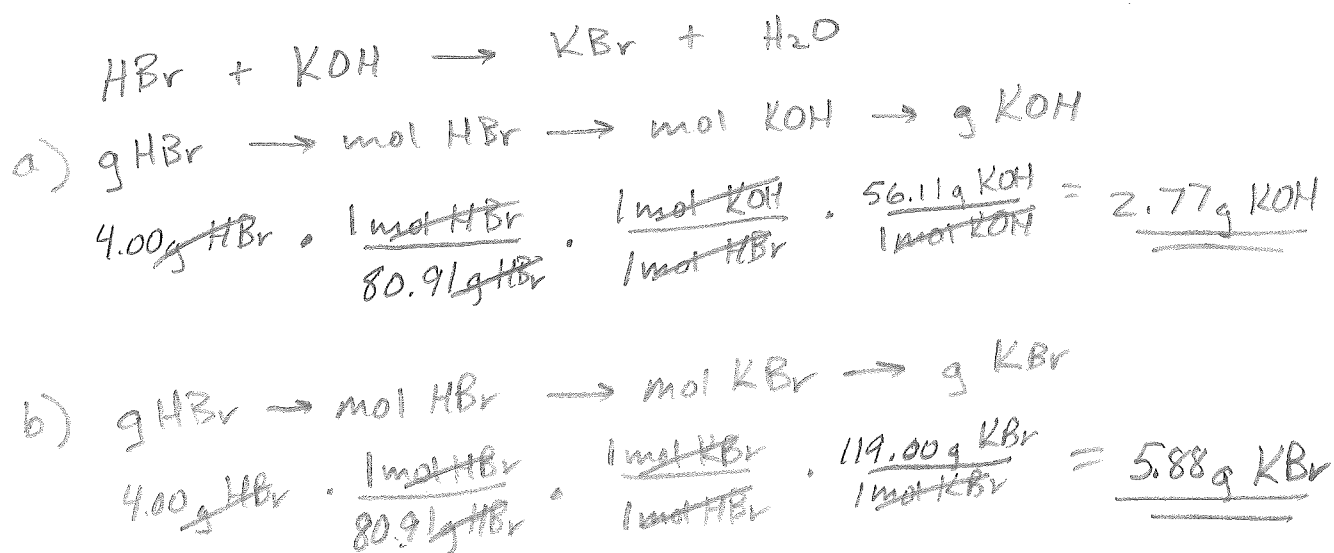 HBr + KOH → KBr + H₂O
a) g HBr → mol HBr → mol KOH → g KOH
4.00 g HBr · 1 mol HBr / 80.91 g HBr · 1 mol KOH / 1 mol HBr · 56.11 g KOH / 1 mol KOH = 2.77 g KOH
b) g HBr → mol HBr → mol KBr → g KBr
4.00 g HBr · 1 mol HBr / 80.91 g HBr · 1 mol KBr / 1 mol HBr · 119.00 g KBr / 1 mol KBr = 5.88 g KBr